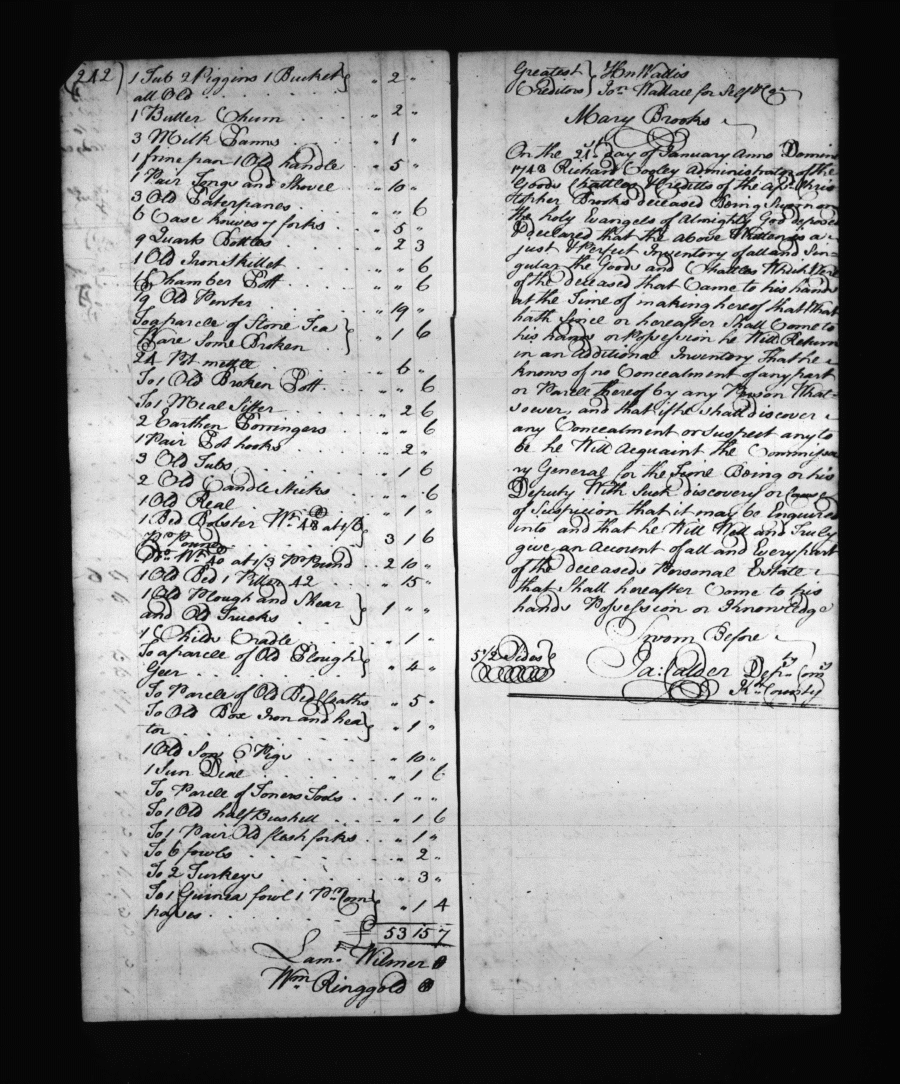 (242)
1 Tub 2 Piggins 1 Bucket } " 2 "
all Old
1 Butter Churn " 2 "
3 Milk Panns " 1 "
1 frine pan 1 Old handle " 5 "
1 Pair Tongs and Shovel " 10 "
3 Old Paterpanes " " 6
6 Case knives 7 forks " 5 "
9 Quarts Bottles " 2 3
1 Old Iron Skillet " " 6
1 Chamber Pott " " 6
19 Old Pewter " 19 "
To a parcle of Stone Tea } " 1 6
Ware Some Broken
24 Pt mettle " 6 "
To 1 Old Broken Pott " " 6
To 1 Meal Sifter " 2 6
2 Earthen Porringers " " 6
1 Pair Pot hooks " 2 "
3 Old Tubs " 1 6
2 Old Candle Sticks " " 6
1 Old Real " 1 "
1 Bed Bolster Wt. 48 at 1/3 } 3 1 6
Pr Pound
Do. Wt. 40 at 1/3 Pr Pound 2 10 "
1 Old Bed 1 Piller 42 " 15 "
1 Old Plough and Shear } 1 " "
and Old Trucks
1 Childs Cradle " 1 "
To a parcle of Old Plough } " 4 "
Geer
To Parcle of Old Bed feathrs " 5 "
To Old Box Iron and hea } " 1 "
tor
1 Old Sow 6 Pigs " 10 "
1 Sun Dial " 1 6
To Parcle of Joners Tools 1 " "
To 1 Old half Bushell " 1 6
To 1 Pair Old flesh forks " 1 "
To 6 fowls " 2 "
To 2 Turkeys " 3 "
To 1 Guinea fowl 1 Pr } " 1 4
£ 53 15 7
Lam. Wilmer
Wm. Ringgold
Greatest } Hn Wallis
Creditors } Jon. Wallace for Self & Co
Mary Brooks
On the 21st day of January Anno Domini
1748 Richard Cooley Administrator of the
Goods Chattles & Creditts of the afd. Chris
topher Brooks deceased Being Sworn on
the holy Evangels of Almighty God deposed
& declared that the above Written is a
just & Perfect Inventory of all and Sin-
gular the Goods and Chattles
of the deceased that Came to his hands
at the Time of making hereof that What
hath Since or hereafter Shall Come to
his hands or Posession he Will Return
in an Additional Inventory That he
knows of no Concealment of any part
or Parcle thereof by any Person What-
soever and that if he shall discover
any Concealment or suspect any to
be he Will Acquaint the Commissa
ry General for the Time Being or his
Deputy With Such discovery or Cause
of Suspicion that it may be Enquired
into and that he Will Well and Truly
give an Account of all and Every part
of the deceaseds Personal Estate
that Shall hereafter Come to his
hands Posession or Knowledge
Sworn Before
5 1/2 Sides } Ja: Calder Depty Comis
Kt. County